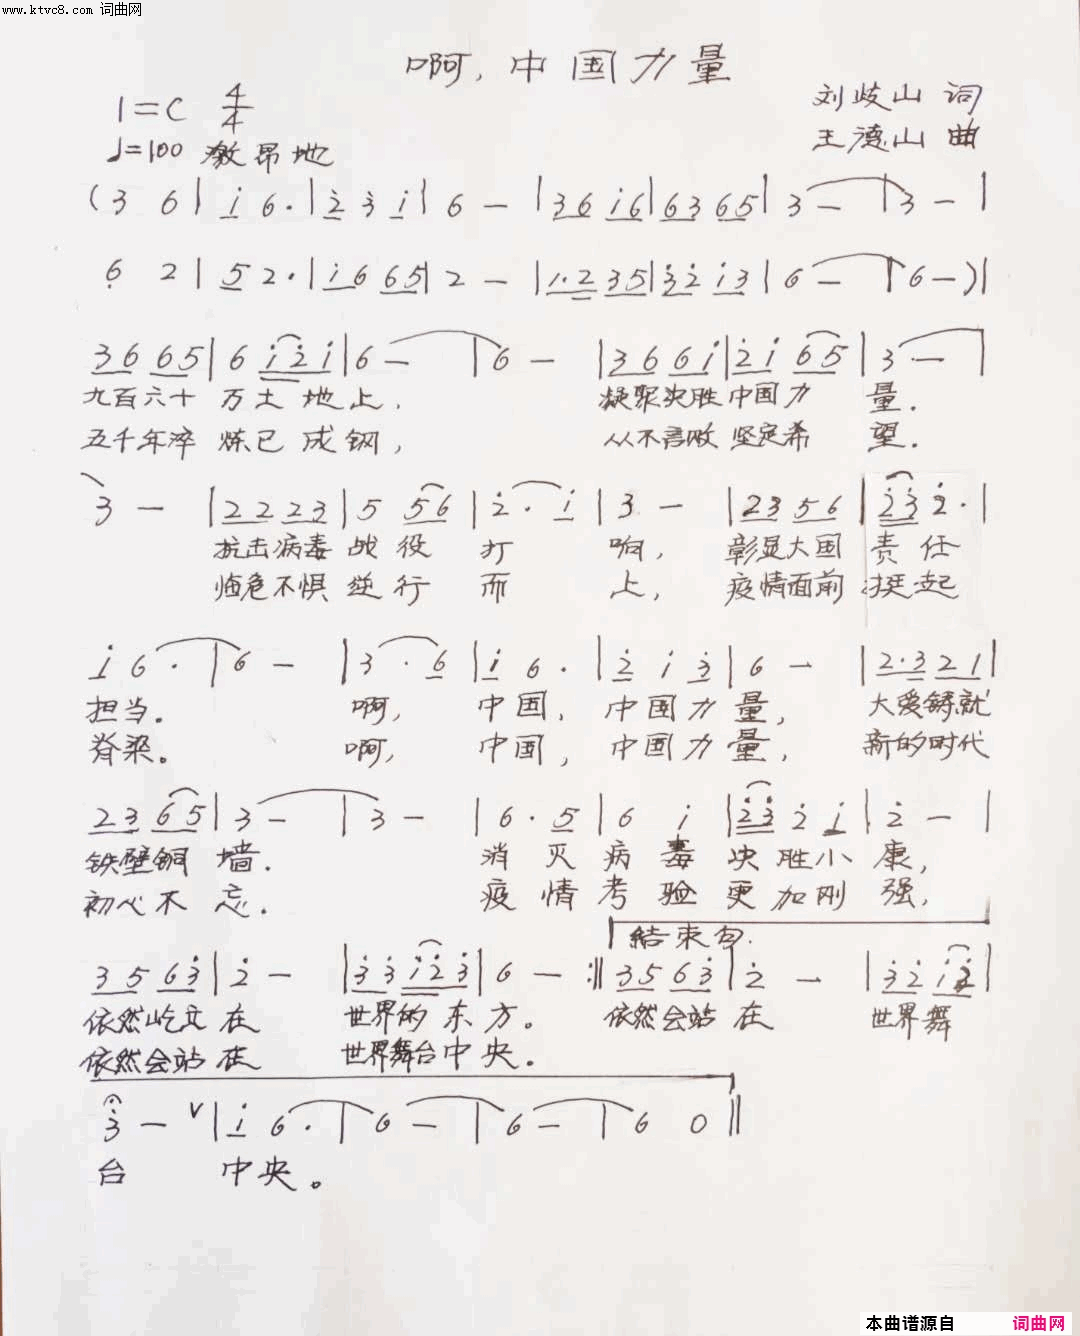 www.ktvc8.com 词曲网
啊,中国力量
1=C 4/4
刘歧山 词
♩=100 激昂地
王德山 曲
(3 6 | i 6· | 2 3 i | 6 — | 36 i6 | 63 65 | 3 — | 3 — |
6 2 | 5 2· | i6 65 | 2 — | 1·2 35 | 32 i3 | 6 — | 6 —) |
36 65 | 6 i2i | 6 — | 6 — | 36 6i | 2i 65 | 3 — |
九百六十 万土地上, 凝聚决胜中国力 量.
五千年淬 炼已成钢, 从不言败 坚定希 望.
3 — | 22 23 | 5 56 | 2· i | 3 — | 23 56 | 23 2· |
抗击病毒 战役 打 响, 彰显大国 责任
临危不惧 逆行 而 上, 疫情面前 挺起
i 6· | 6 — | 3· 6 | i 6· | 2 i 3 | 6 — | 2·3 21 |
担当。 啊, 中国, 中国力量, 大爱铸就
脊梁。 啊, 中国, 中国力量, 新的时代
23 65 | 3 — | 3 — | 6· 5 | 6 i | 23 2 i | 2 — |
铁壁铜 墙. 消灭病毒 决胜小 康,
初心不 忘. 疫情考验 更加刚 强,
結束句.
35 63 | 2 — | 33 i23 | 6 — :‖ 35 63 | 2 — | 32 i2 |
依然屹立 在 世界的东方。 依然会站 在 世界舞
依然会站 在 世界舞台中央。
3 — V | i 6· | 6 — | 6 — | 6 0 ‖
台 中央。
本曲谱源自 词曲网